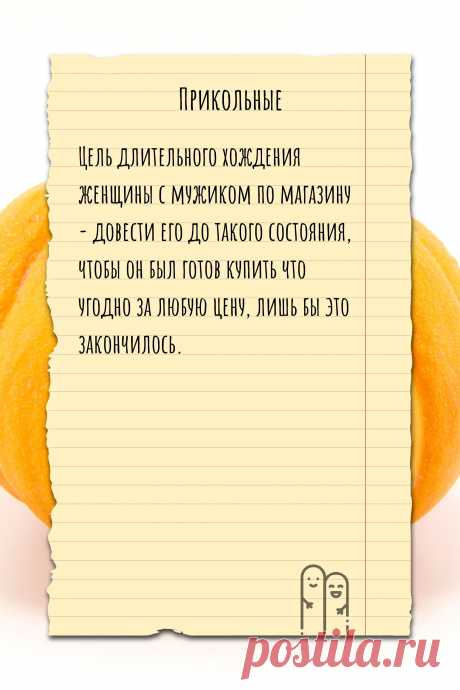 Прикольные
Цель длительного хождения
женщины с мужиком по магазину
- довести его до такого состояния,
чтобы он был готов купить что
угодно за любую цену, лишь бы это
закончилось.
postila.ru